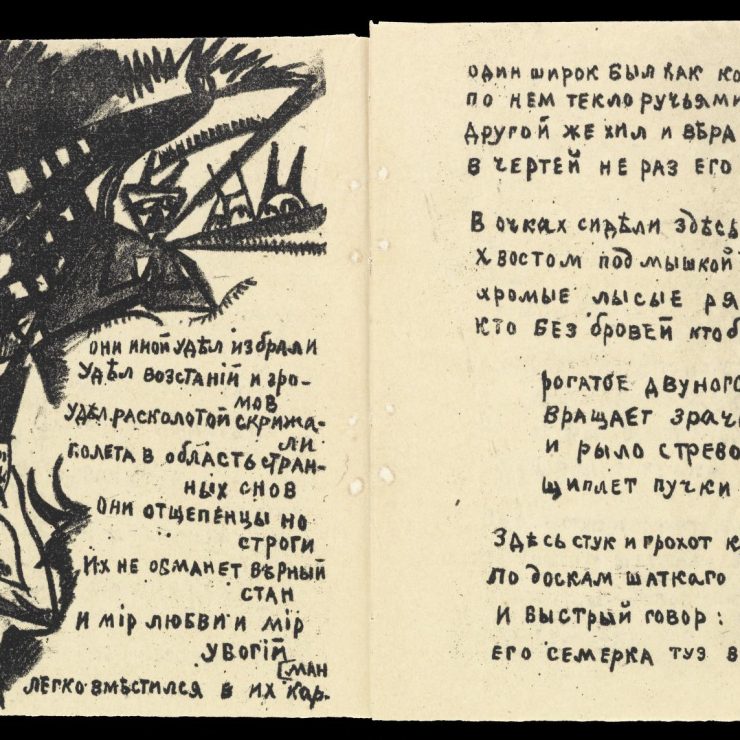 они иной удѣл избрали
Удѣл возстаній и гро-
мов
Удѣл расколотой скрижа-
ли
полета в область стран-
ных снов
Они отщепенцы но
строги
Их не обманет вѣрный
стан
И мір любви и мір
убогій
[ман
легко вмѣстился в их кар-
один широк был как
по нем текло ручьями
Другой же хил и
в чертей не раз его
В очках сидѣли здѣсь
Хвостом под мышкой
хромые лысые
кто без бровей кто
рогатое
вращает
и рыло
щиплет пучки
Здѣсь стук и грохот
по доскам шаткаго
и быстрый говор:
его семерка туз